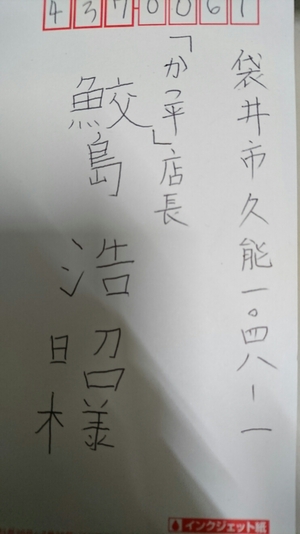 4370061
袋井市久能一〇四八-一
「かつ平」店長
鮫島浩昭様
インクジェット紙